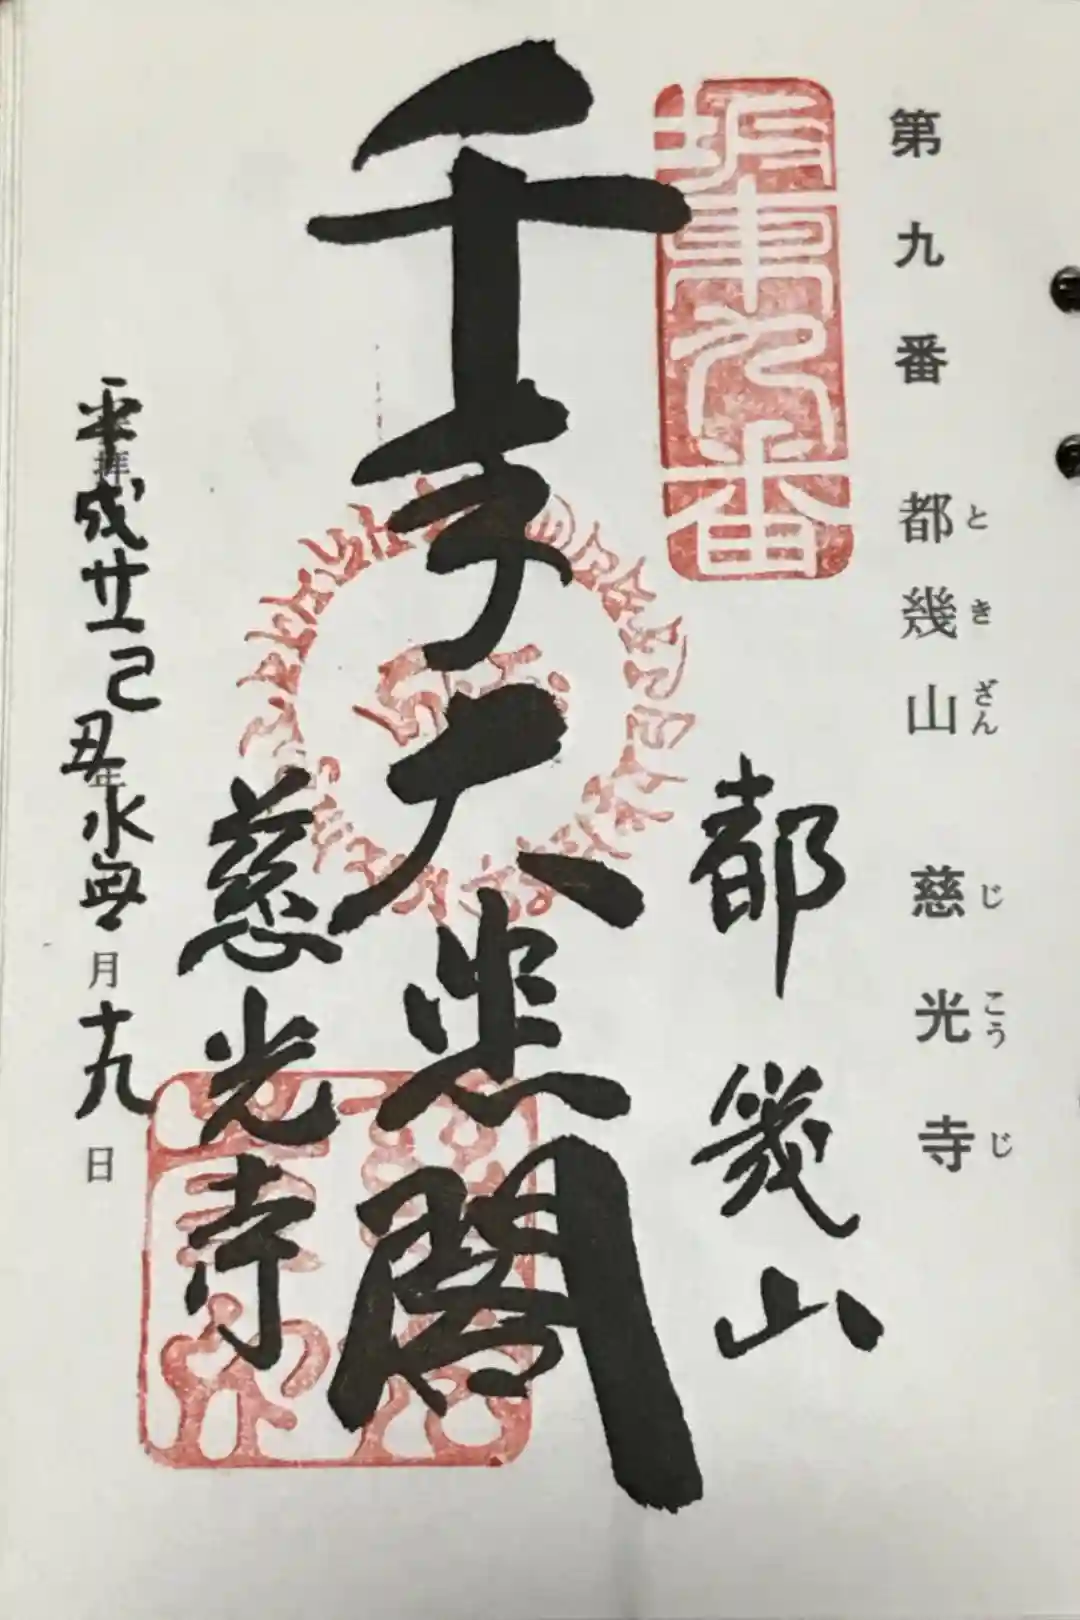 第九番 都幾山 慈光寺
と き ざん じ こう じ
坂東九番
都幾山
千手大悲閣
慈光寺
平成廿一己丑年水無月十九日